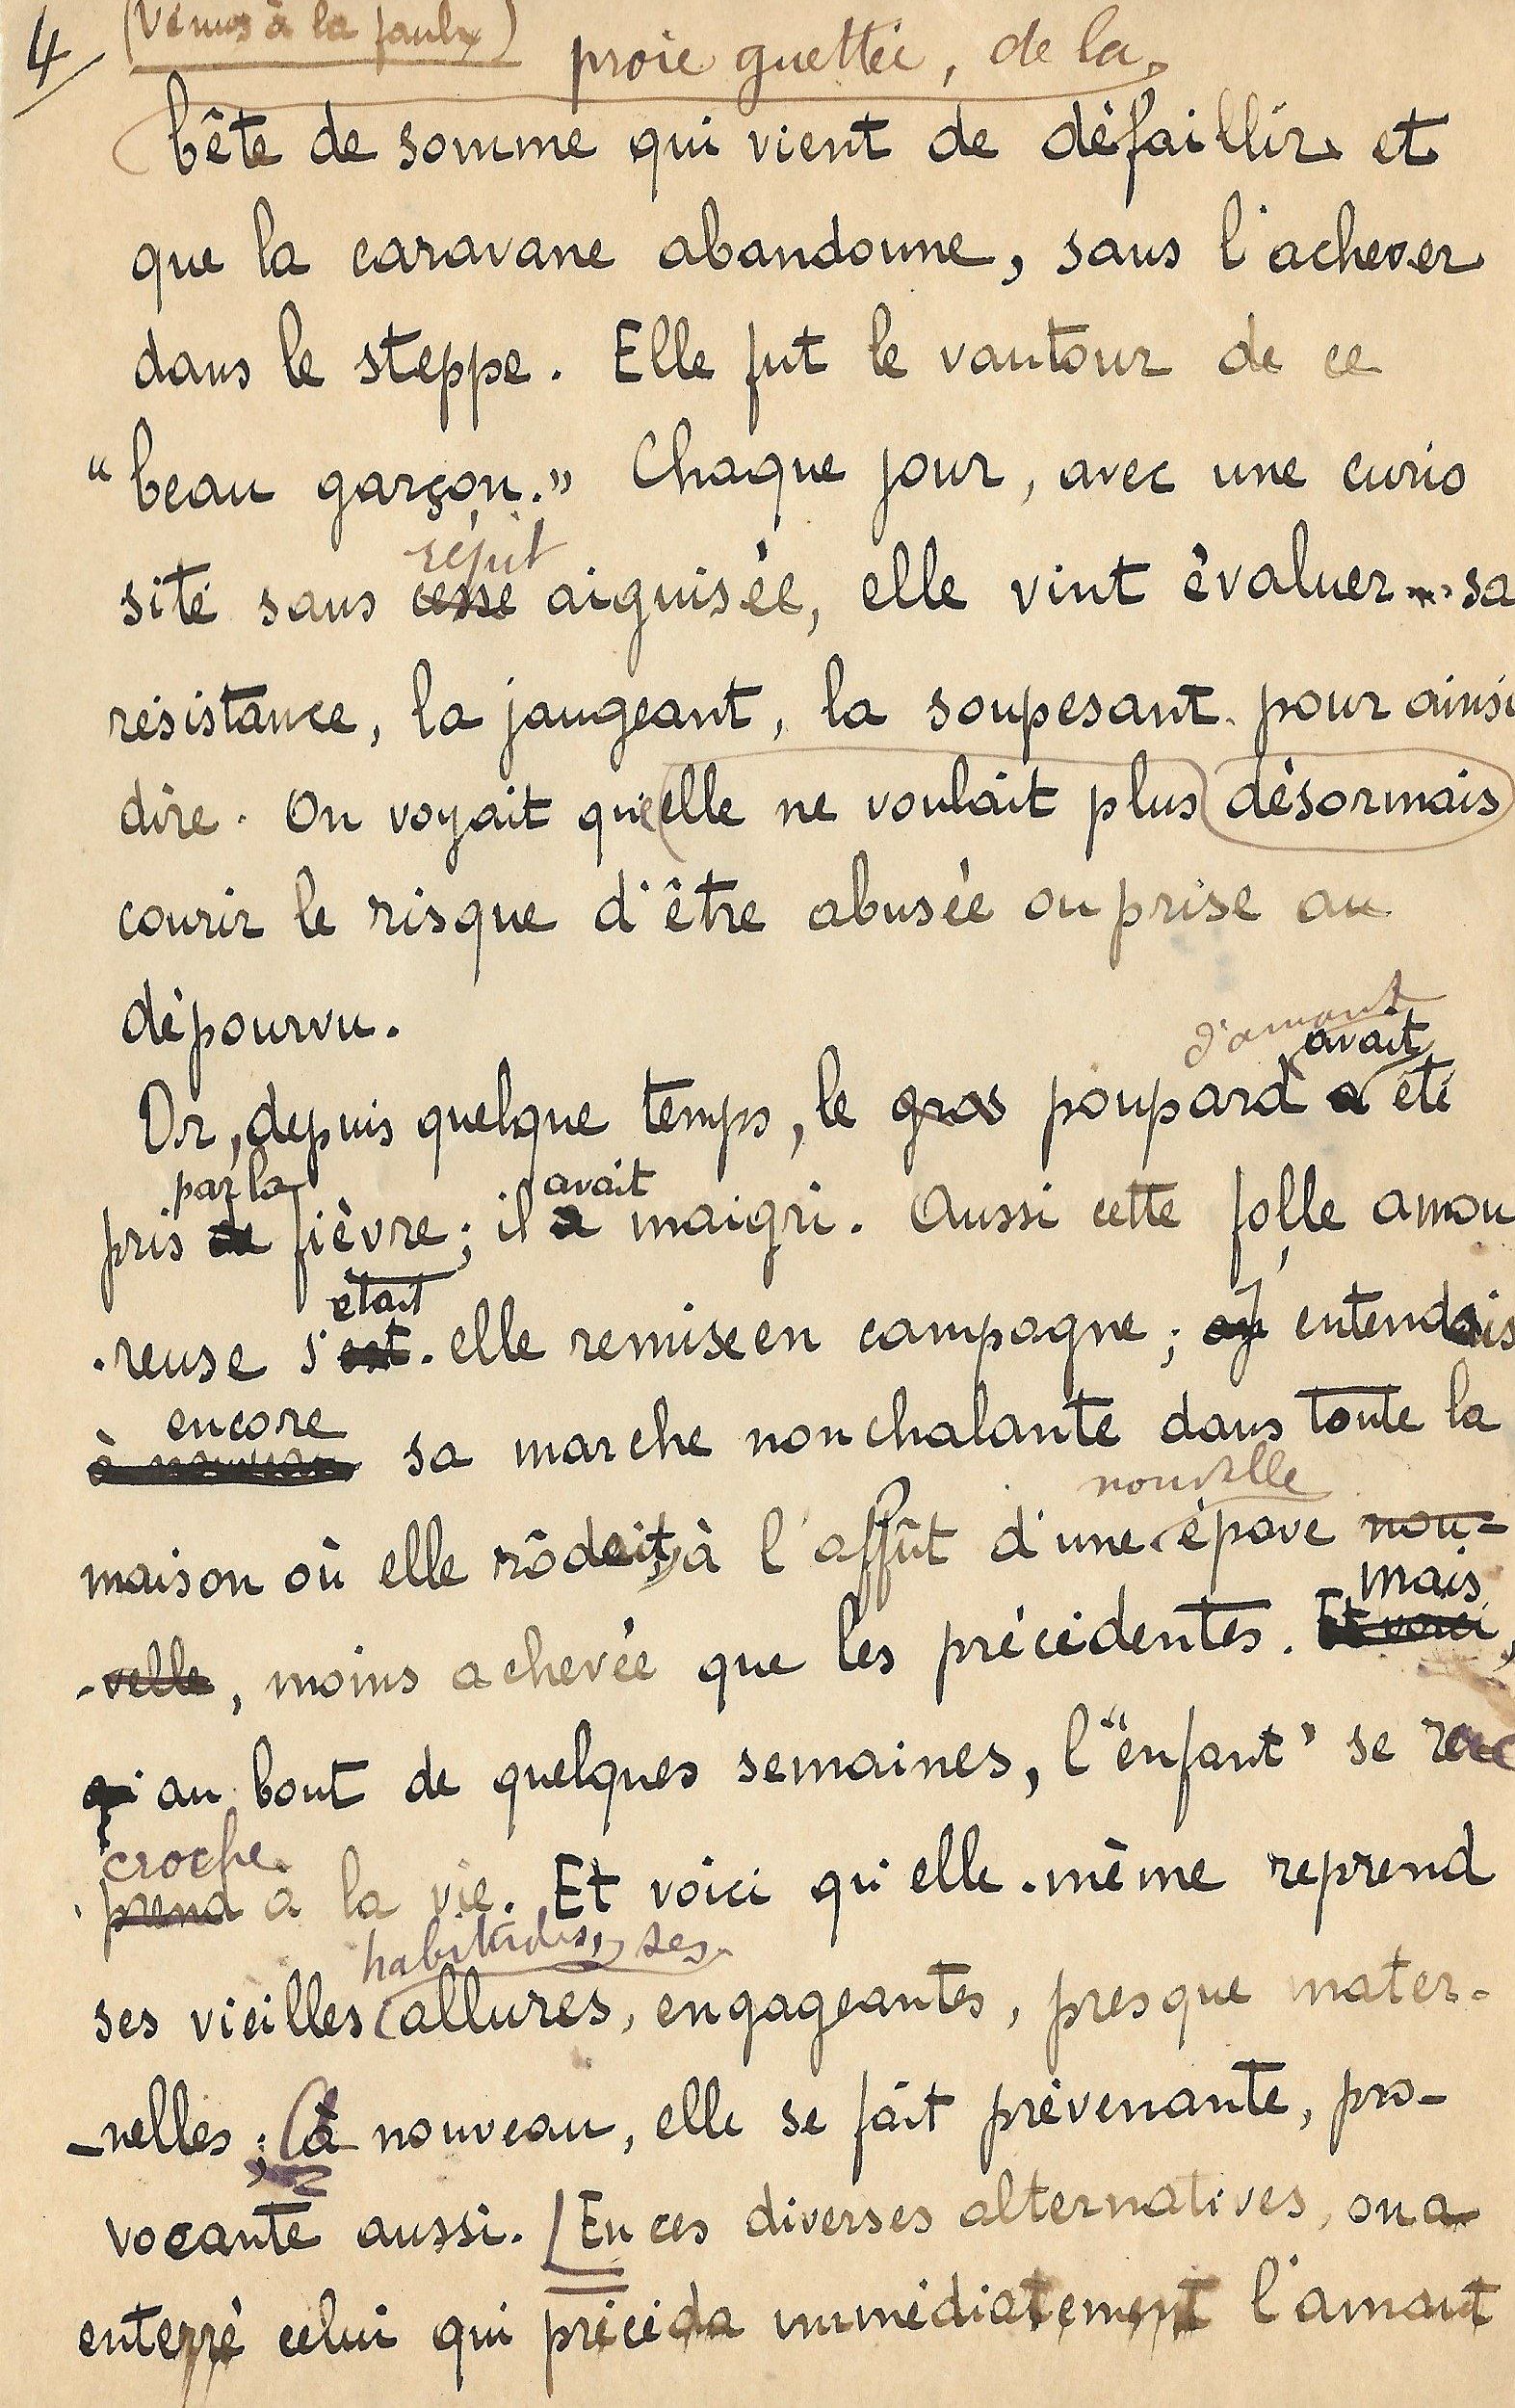 4 (Vénus à la faulx) proie guettée, de la
bête de somme qui vient de défaillir et
que la caravane abandonne, sans l'achever
dans le steppe. Elle fut le vautour de ce
"beau garçon." Chaque jour, avec une curio
répit
sité sans cesse aiguisée, elle vint évaluer sa
résistance, la jaugeant, la soupesant pour ainsi
dire. On voyait qu'elle ne voulait plus désormais
courir le risque d'être abusée ou prise au
dépourvu.
d'amant avait
Or, depuis quelque temps, le gros poupard a été
par la avait
pris de fièvre; il a maigri. Aussi cette folle amou
était
-reuse s'est-elle remise en campagne; entendais
encore
à nouveau sa marche nonchalante dans toute la
nouvelle
maison où elle rôdait, à l'affût d'une épave nou-
mais
-velle, moins achevée que les précédentes. Et voici,
au bout de quelques semaines, l'"enfant" se rac
croche
prend à la vie. Et voici qu'elle-même reprend
habitudes, ses
ses vieilles allures, engageantes, presque mater-
-nelles; à nouveau, elle se fait prévenante, pro-
vocante aussi. [En ces diverses alternatives, on a
enterré celui qui précéda immédiatement l'amant